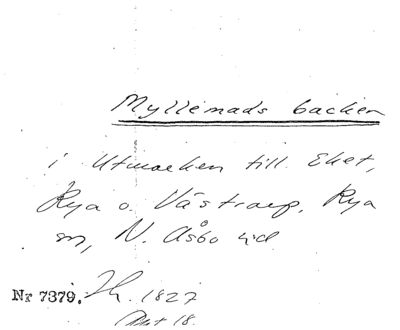 Myllemads backen
i Utmarken till Eket,
Rya o. Västraup, Rya
sn, N. Åsbo hd
Nr 7379. 1827
Akt 18.